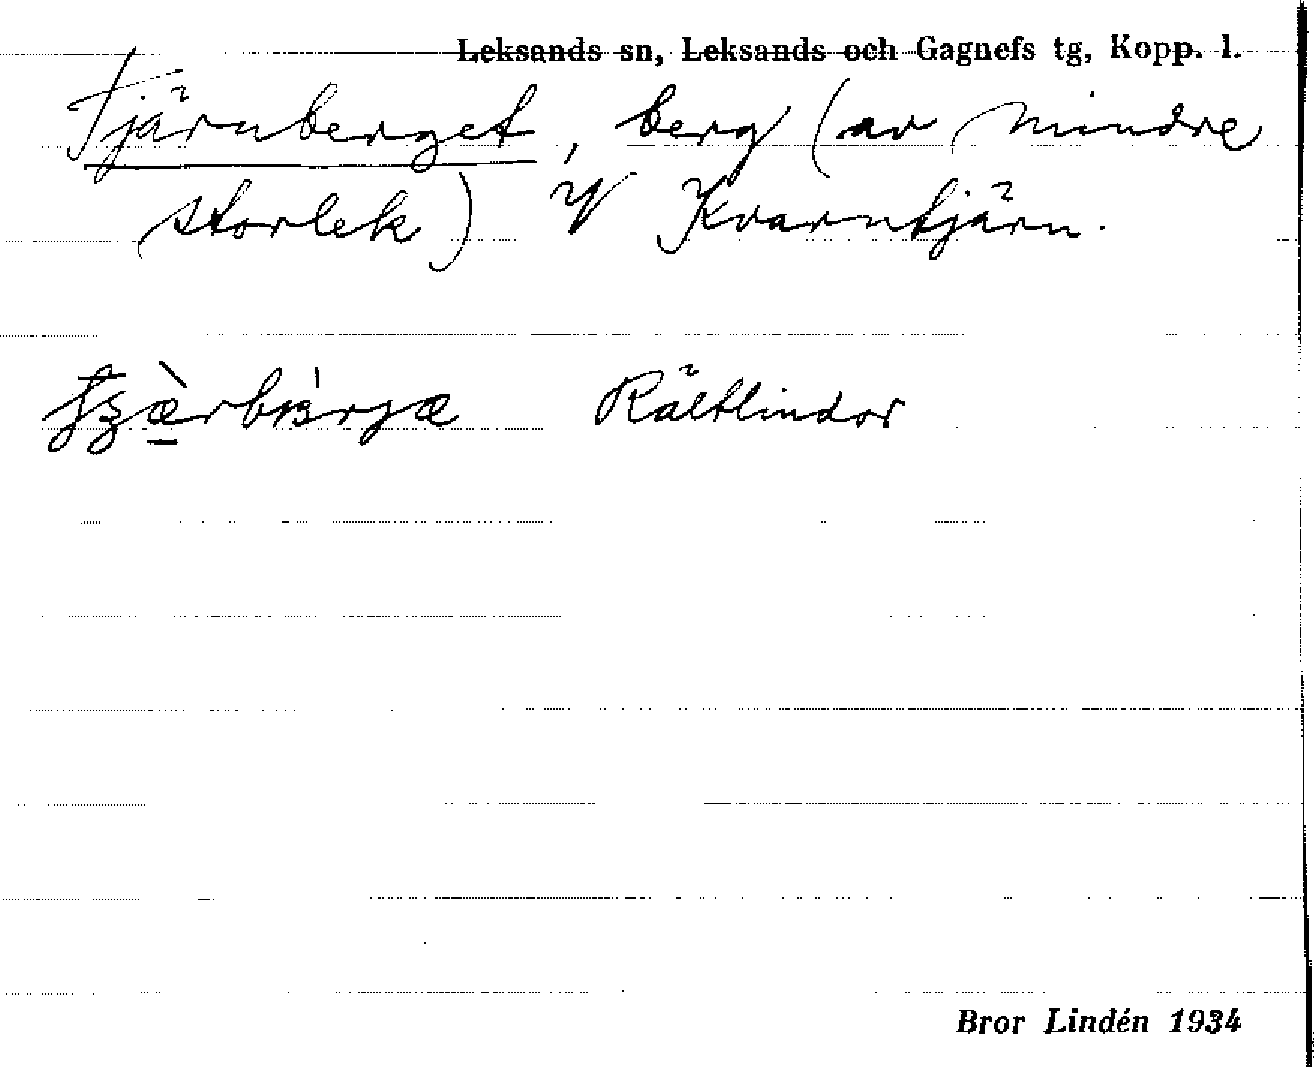 Leksands sn, Leksands och Gagnefs tg, Kopp. l.
Tjärnberget, berg (av mindre
storlek) i/ Kvarntjärn.
Rältlindor
Bror Lindén 1934